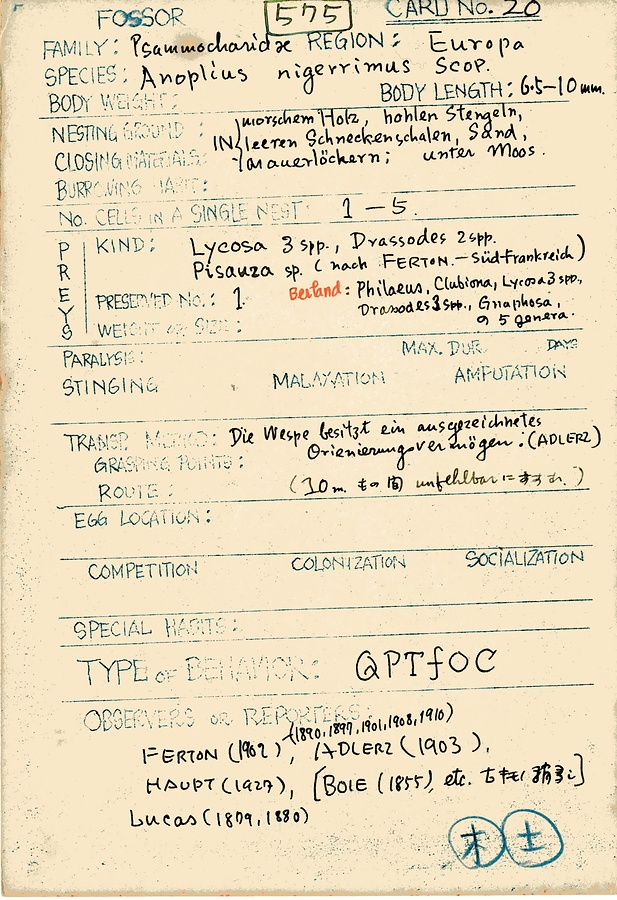 FOSSOR 575 CARD No. 20
FAMILY: Psammocharidæ REGION: Europa
SPECIES: Anoplius nigerrimus Scop.
BODY WEIGHT: BODY LENGTH: 6.5–10 mm.
NESTING GROUND : IN morschem Holz, hohlen Stengeln,
leeren Schneckenschalen, Sand,
CLOSING MATERIALS: Mauerlöchern; unter Moos.
BURROWING HABIT:
No. CELLS IN A SINGLE NEST: 1–5.
PREYS
KIND: Lycosa 3 spp., Drassodes 2 spp.
Pisaura sp. (nach FERTON.–Süd-Frankreich)
PRESERVED No.: 1 Berland: Philaeus, Clubiona, Lycosa 3 spp.,
Drassodes 3 spp., Gnaphosa,
WEIGHT OR SIZE: の 5 genera.
PARALYSIS: MAX. DUR. DAYS
STINGING MALAXATION AMPUTATION
TRANSP. METHOD: Die Wespe besitzt ein ausgezeichnetes
Orienierungsvermögen: (ADLERZ)
GRASPING POINTS:
ROUTE: (10 m. もの間 unfehlbar に)
EGG LOCATION:
COMPETITION COLONIZATION SOCIALIZATION
SPECIAL HABITS:
TYPE OF BEHAVIOR: QPTfOC
OBSERVERS OR REPORTERS:
(1890, 1897, 1901, 1908, 1910)
FERTON (1902), ADLERZ (1903),
HAUPT (1927), [BOIE (1855), etc.]
Lucas (1879, 1880)
木 土